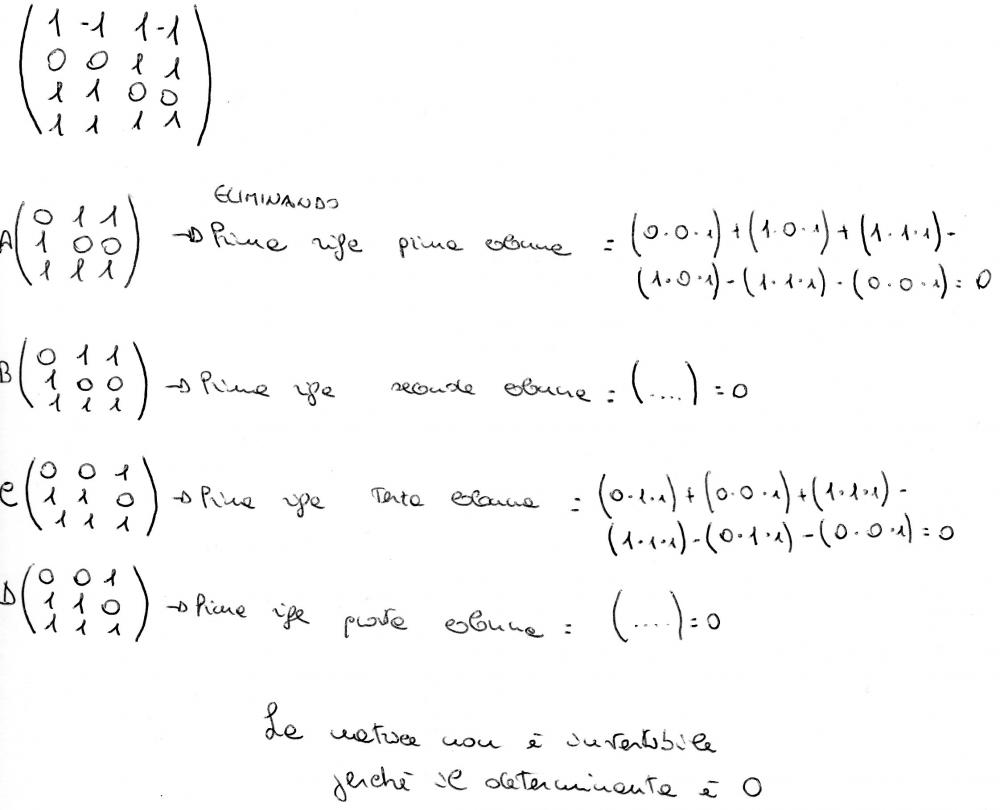 1 -1 1 -1
0 0 1 1
1 1 0 0
1 1 1 1
ELIMINANDO
A 0 1 1
1 0 0
1 1 1
→ Prima riga prima colonna = (0·0·1) + (1·0·1) + (1·1·1) -
(1·0·1) - (1·1·1) - (0·0·1) = 0
B 0 1 1
1 0 0
1 1 1
→ Prima riga seconda colonna = (....) = 0
C 0 0 1
1 1 0
1 1 1
→ Prima riga Terza colonna = (0·1·1) + (0·0·1) + (1·1·1) -
(1·1·1) - (0·1·1) - (0·0·1) = 0
D 0 0 1
1 1 0
1 1 1
→ Prima riga quarta colonna = (....) = 0
La matrice non è invertibile
perché il determinante è 0